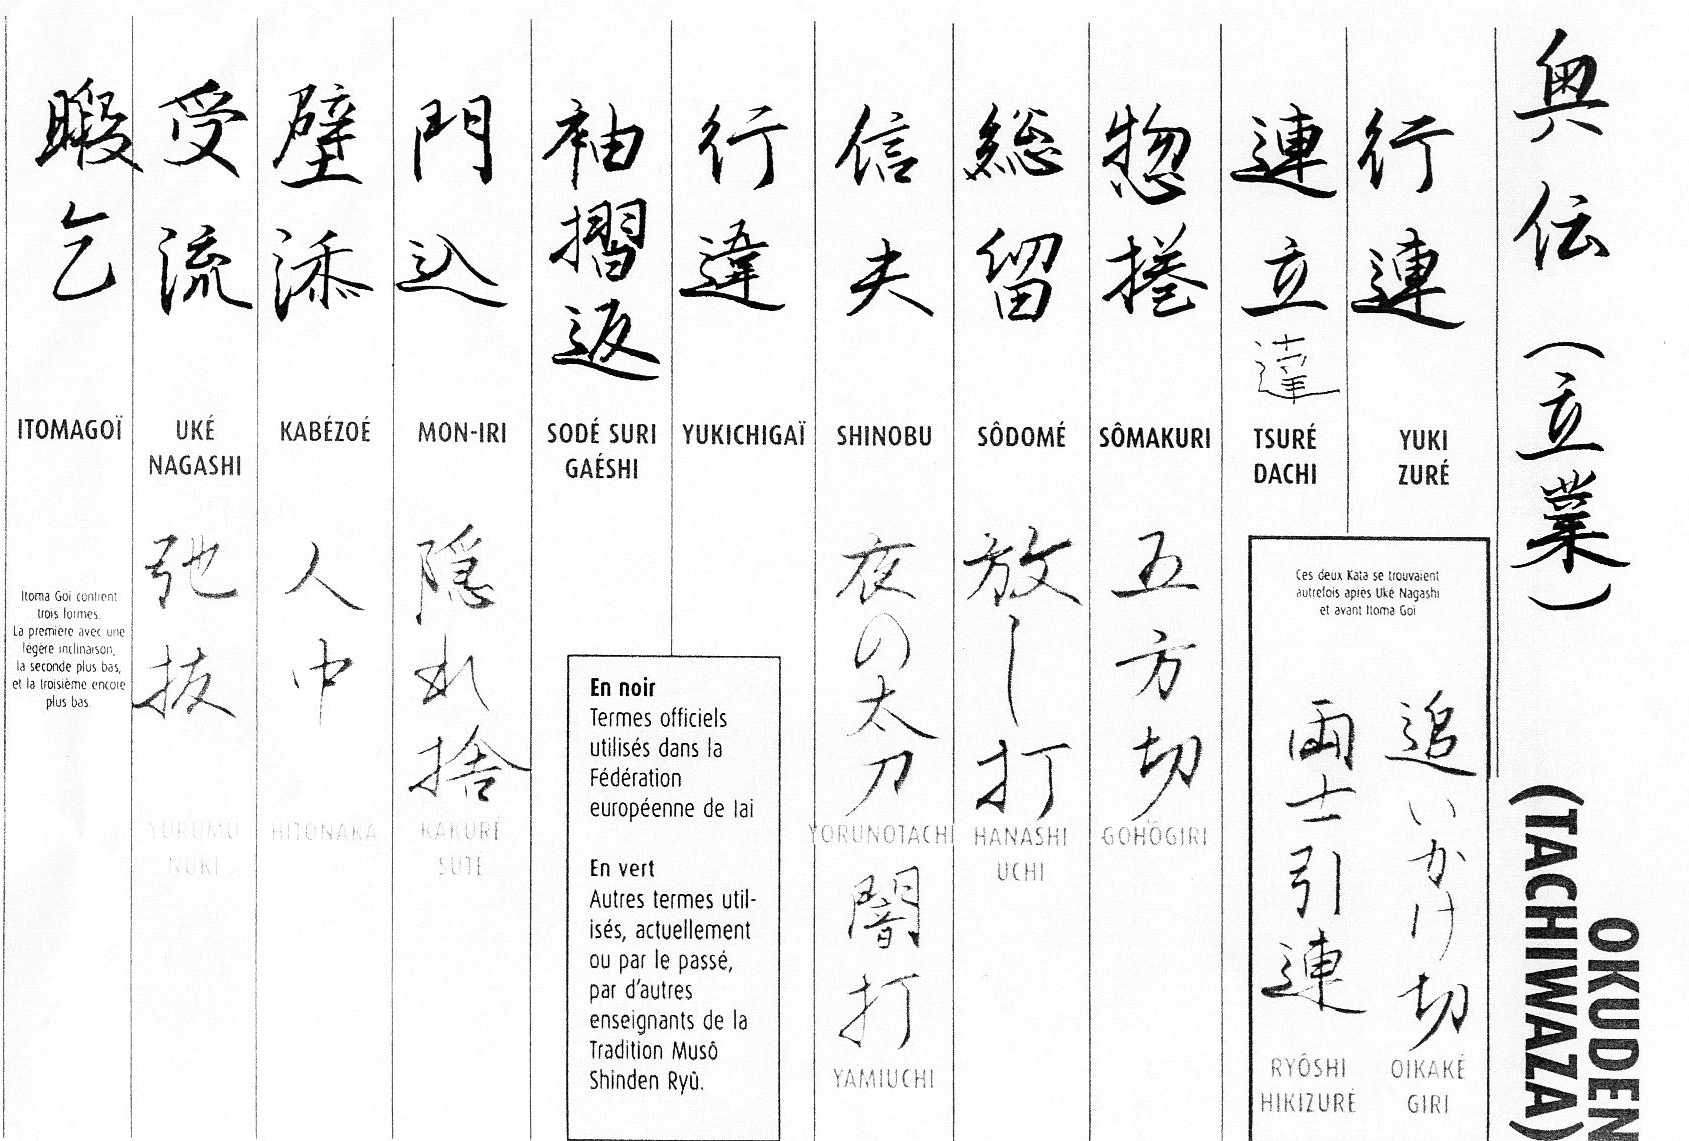 奥伝（立業）
OKUDEN
(TACHIWAZA)
行連
YUKI
ZURÉ
連立
達
TSURÉ
DACHI
Ces deux Kata se trouvaient
autrefois après Uké Nagashi
et avant Itoma Goi
追いかけ切
OIKAKÉ
GIRI
両士引連
RYÔSHI
HIKIZURÉ
惣捲
SÔMAKURI
五方切
GOHÔGIRI
総留
SÔDOMÉ
放し打
HANASHI
UCHI
信夫
SHINOBU
夜の太刀
YORUNOTACHI
闇打
YAMIUCHI
行違
YUKICHIGAÏ
袖摺返
SODÉ SURI
GAÉSHI
En noir
Termes officiels
utilisés dans la
Fédération
européenne de Iai
En vert
Autres termes util-
isés, actuellement
ou par le passé,
par d'autres
enseignants de la
Tradition Musô
Shinden Ryû.
門込
MON-IRI
隠れ捨
KAKURÉ
SUTÉ
壁添
KABÉZOÉ
人中
HITONAKA
受流
UKÉ
NAGASHI
弛抜
YURUMU
NUKI
暇乞
ITOMAGOÏ
Itoma Goi contient
trois formes.
La première avec une
légère inclinaison,
la seconde plus bas,
et la troisième encore
plus bas.